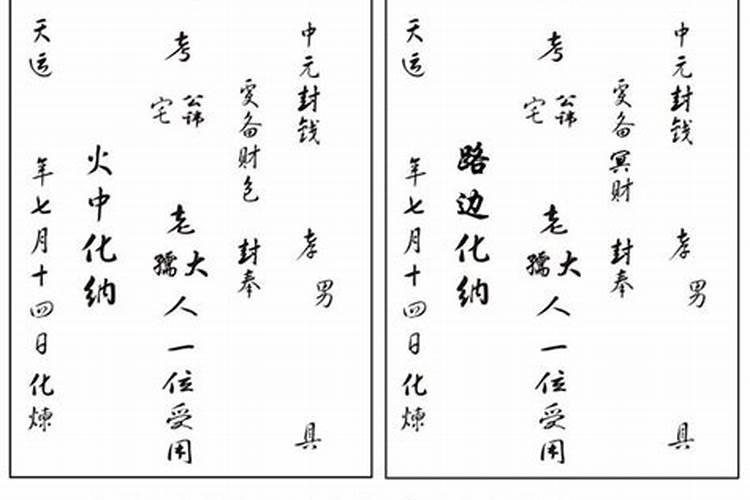 中元封钱 孝男 具
虔备财包 封奉
考 公讳 宅 老大孺人一位受用
火中化纳
天运 年七月十四日化炼
中元封钱 孝男 具
虔备冥财 封奉
考 公讳 宅 老大孺人一位受用
路边化纳
天运 年七月十四日化炼